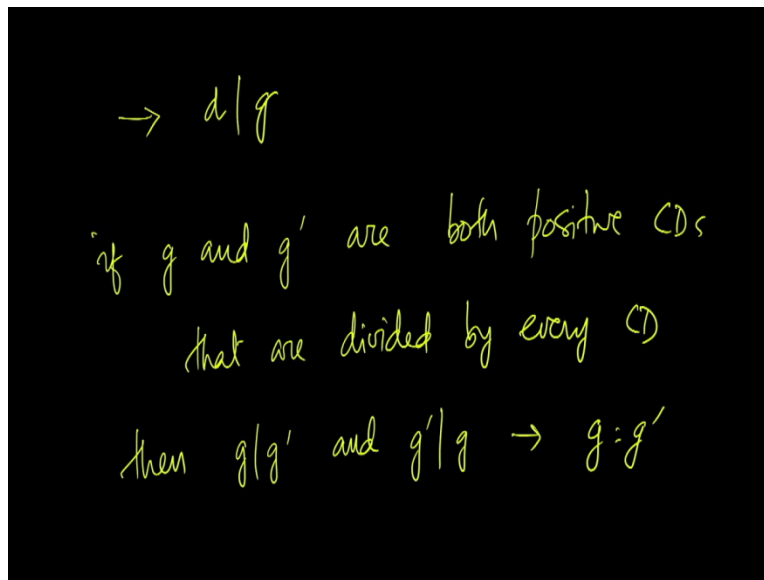 → d|g
if g and g' are both positive CDs
that are divided by every CD
then g|g' and g'|g → g = g'